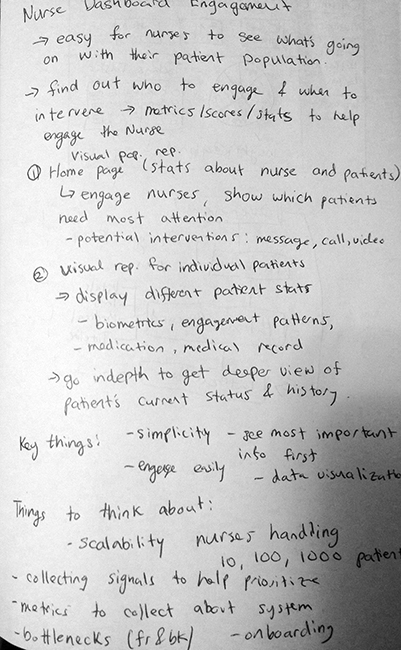 Nurse Dashboard Engagement
→ easy for nurses to see what's going
on with their patient population.
→ find out who to engage & when to
intervene → metrics/scores/stats to help
engage the Nurse
Visual pop. rep.
① Home page (stats about nurse and patients)
↳ engage nurses, show which patients
need most attention
- potential interventions: message, call, video
② visual rep. for individual patients
→ display different patient stats
- biometrics, engagement patterns,
- medication, medical record
→ go indepth to get deeper view of
patient's current status & history.
Key things: - simplicity - see most important
info first
- engage easily - data visualizatio
Things to think about:
- scalability nurses handling
10, 100, 1000 patien
- collecting signals to help prioitize
- metrics to collect about system
- bottlenecks (fr & bk) - onboarding